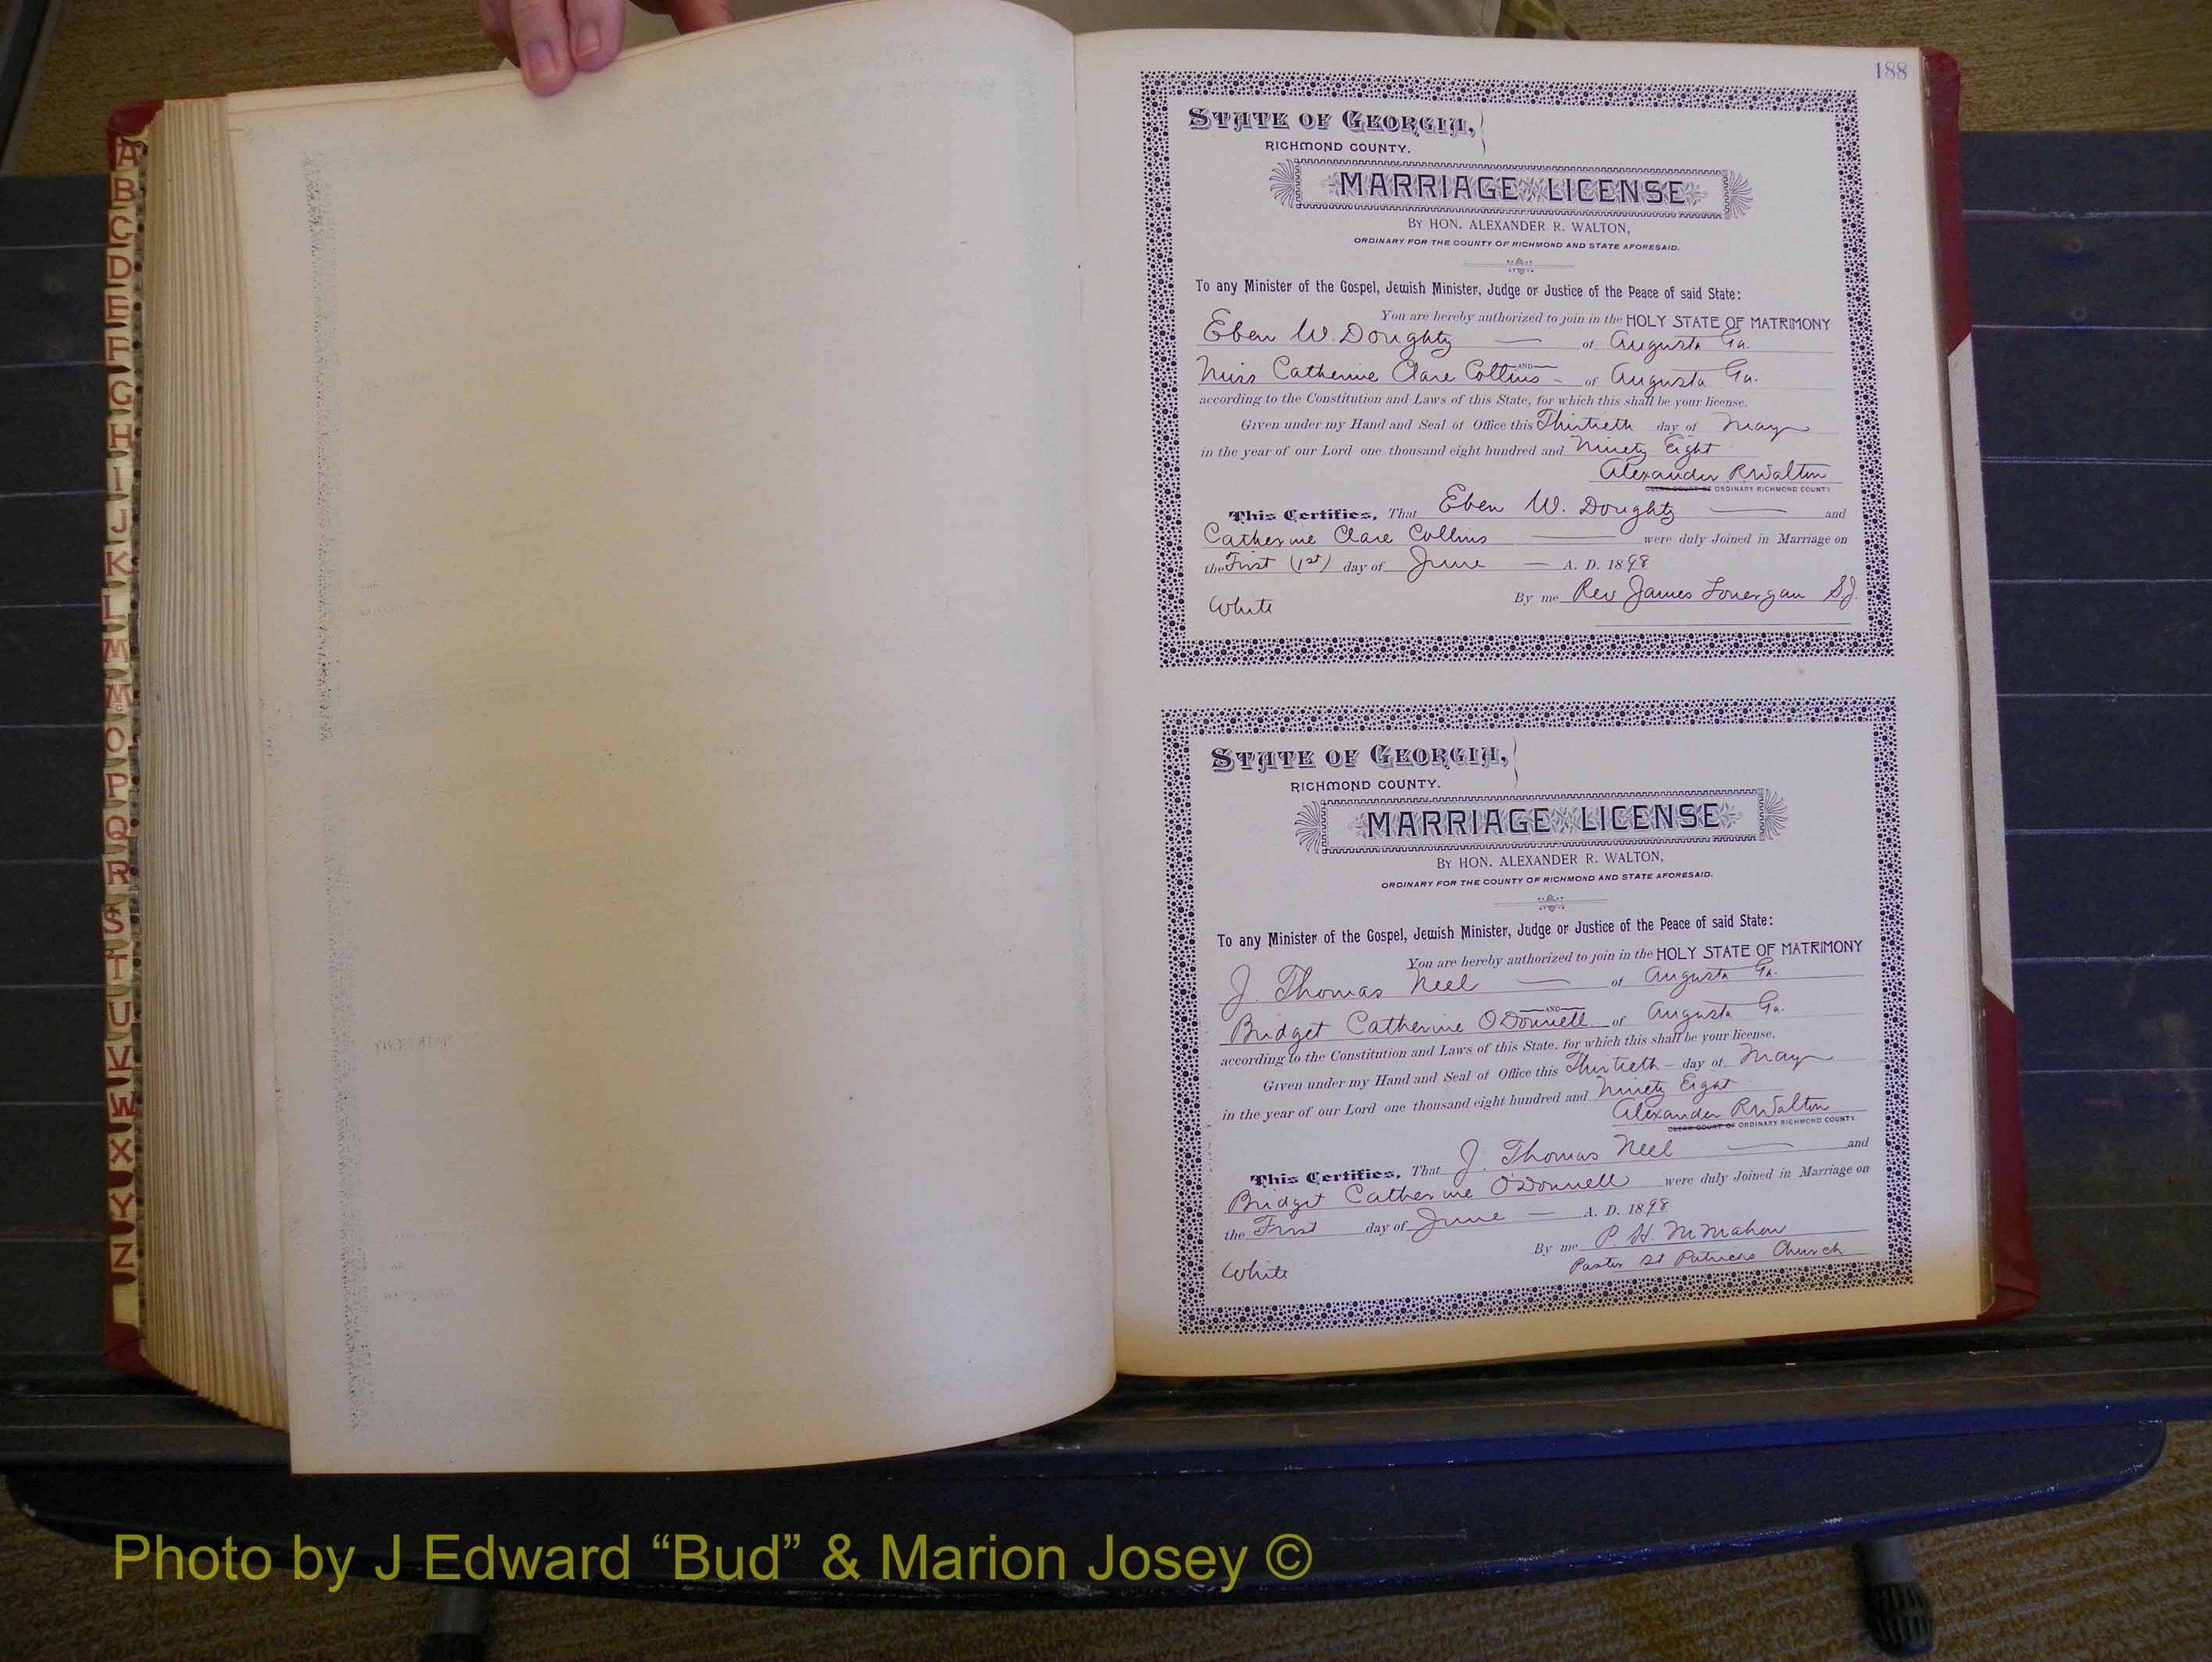 188
STATE OF GEORGIA,
RICHMOND COUNTY.
MARRIAGE LICENSE
BY HON. ALEXANDER R. WALTON,
ORDINARY FOR THE COUNTY OF RICHMOND AND STATE AFORESAID.
To any Minister of the Gospel, Jewish Minister, Judge or Justice of the Peace of said State:
You are hereby authorized to join in the HOLY STATE OF MATRIMONY
Eben W. Doughty — of Augusta Ga.
AND
Miss Catherine Clare Collins - of Augusta Ga.
according to the Constitution and Laws of this State, for which this shall be your license.
Given under my Hand and Seal of Office this Thirtieth day of May
in the year of our Lord one thousand eight hundred and Ninety Eight
Alexander R Walton
CLERK COURT OF ORDINARY RICHMOND COUNTY
This Certifies, That Eben W. Doughty — and
Catherine Clare Collins — were duly Joined in Marriage on
the First (1st) day of June — A. D. 1898
By me Rev James Lonergan S.J.
White
STATE OF GEORGIA,
RICHMOND COUNTY.
MARRIAGE LICENSE
BY HON. ALEXANDER R. WALTON,
ORDINARY FOR THE COUNTY OF RICHMOND AND STATE AFORESAID.
To any Minister of the Gospel, Jewish Minister, Judge or Justice of the Peace of said State:
You are hereby authorized to join in the HOLY STATE OF MATRIMONY
J. Thomas Neel — of Augusta Ga.
AND
Bridget Catherine O'Donnell of Augusta Ga.
according to the Constitution and Laws of this State, for which this shall be your license.
Given under my Hand and Seal of Office this Thirtieth - day of May
in the year of our Lord one thousand eight hundred and Ninety Eight
Alexander R Walton
CLERK COURT OF ORDINARY RICHMOND COUNTY.
This Certifies, That J. Thomas Neel — and
Bridget Catherine O'Donnell were duly Joined in Marriage on
the First day of June — A. D. 1898
By me P. H. McMahon
Pastor St Patricks Church
White
A
B
C
D
E
F
G
H
I
J
K
L
M
Mc
O
P
Q
R
S
T
U
V
W
X
Y
Z
Photo by J Edward “Bud” & Marion Josey ©